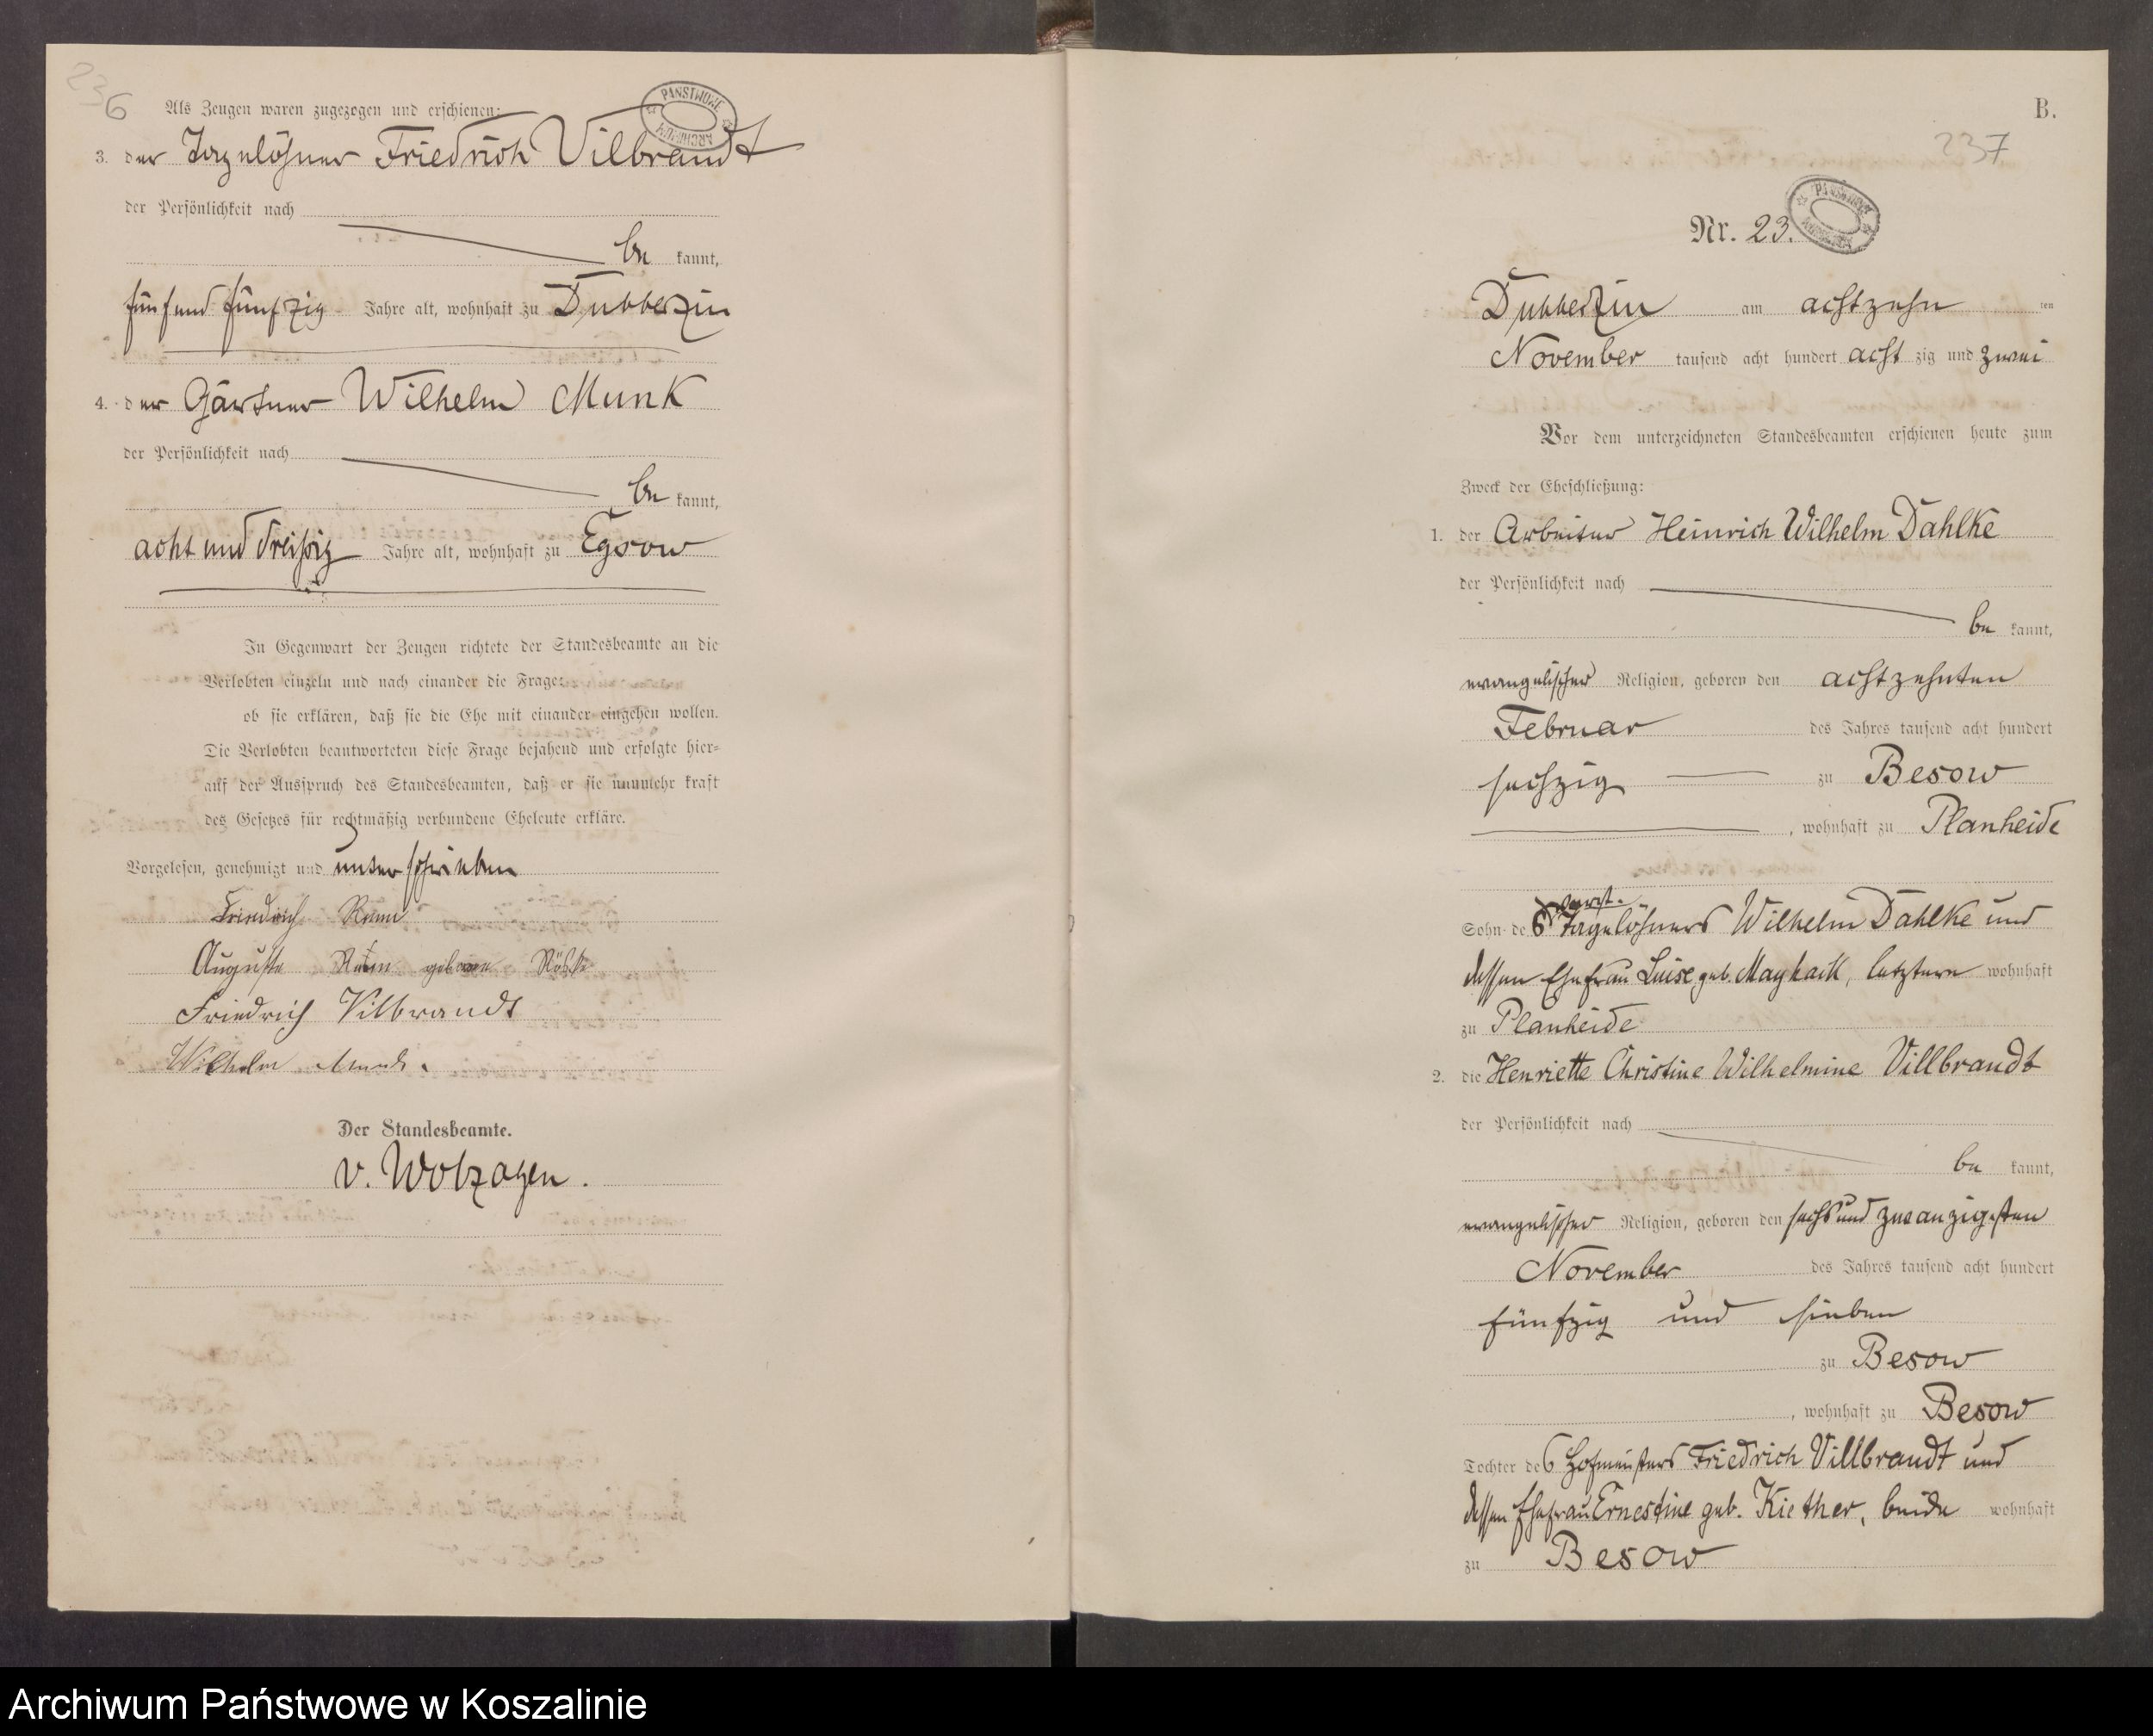 236
PAŃSTWOWE ARCHIWUM
Als Zeugen waren zugezogen und erschienen:
3. der Tagelöhner Friedrich Vilbrandt
der Persönlichkeit nach
be kannt,
fünfund fünfzig Jahre alt, wohnhaft zu Dubberzin
4. der Gärtner Wilhelm Munk
der Persönlichkeit nach
be kannt,
acht und dreißig Jahre alt, wohnhaft zu Egsow
In Gegenwart der Zeugen richtete der Standesbeamte an die
Verlobten einzeln und nach einander die Frage:
ob sie erklären, daß sie die Ehe mit einander eingehen wollen.
Die Verlobten beantworteten diese Frage bejahend und erfolgte hier-
auf der Ausspruch des Standesbeamten, daß er sie nunmehr kraft
des Gesetzes für rechtmäßig verbundene Eheleute erkläre.
Vorgelesen, genehmigt und unterschrieben
Friedrich
Auguste geborene
Friedrich Vilbrandt
Wilhelm Munk.
Der Standesbeamte.
v. Wolzogen.
B.
237
Nr. 23.
PAŃSTWOWE ARCHIWUM
Dubberzin am achtzehn ten
November tausend acht hundert acht zig und zwei
Vor dem unterzeichneten Standesbeamten erschienen heute zum
Zweck der Eheschließung:
1. der Arbeiter Heinrich Wilhelm Dahlke
der Persönlichkeit nach
be kannt,
evangelischer Religion, geboren den achtzehnten
Februar des Jahres tausend acht hundert
sechzig zu Besow
, wohnhaft zu Planheide
verst.
Sohn des Tagelöhners Wilhelm Dahlke und
dessen Ehefrau Luise geb. , letztere wohnhaft
zu Planheide
2. die Henriette Christine Wilhelmine Villbrandt
der Persönlichkeit nach
be kannt,
evangelischer Religion, geboren den sechsund zwanzigsten
November des Jahres tausend acht hundert
fünfzig und sieben
zu Besow
, wohnhaft zu Besow
Tochter des Hofmeisters Friedrich Villbrandt und
dessen Ehefrau Ernestine geb. Kiether, beide wohnhaft
zu Besow
Archiwum Państwowe w Koszalinie